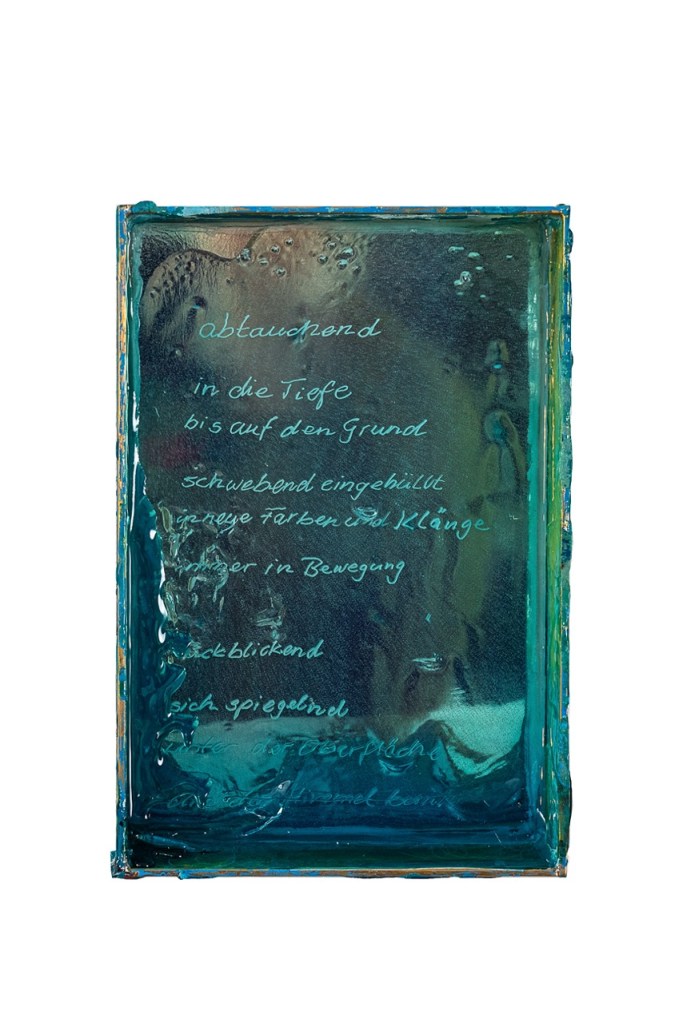 abtauchend
in die Tiefe
bis auf den Grund
schwebend eingehüllt
in neue Farben und Klänge
immer in Bewegung
rückblickend
sich spiegelnd
unter der Oberfläche
Himmel